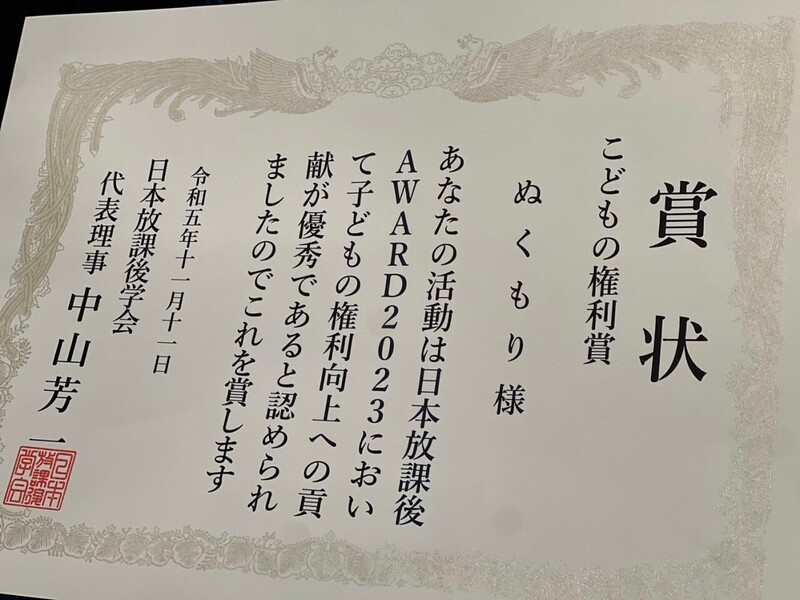 賞状
こどもの権利賞
ぬくもり様
あなたの活動は日本放課後
AWARD2023におい
て子どもの権利向上への貢
献が優秀であると認められ
ましたのでこれを賞します
令和五年十一月十一日
日本放課後学会
代表理事 中山芳一